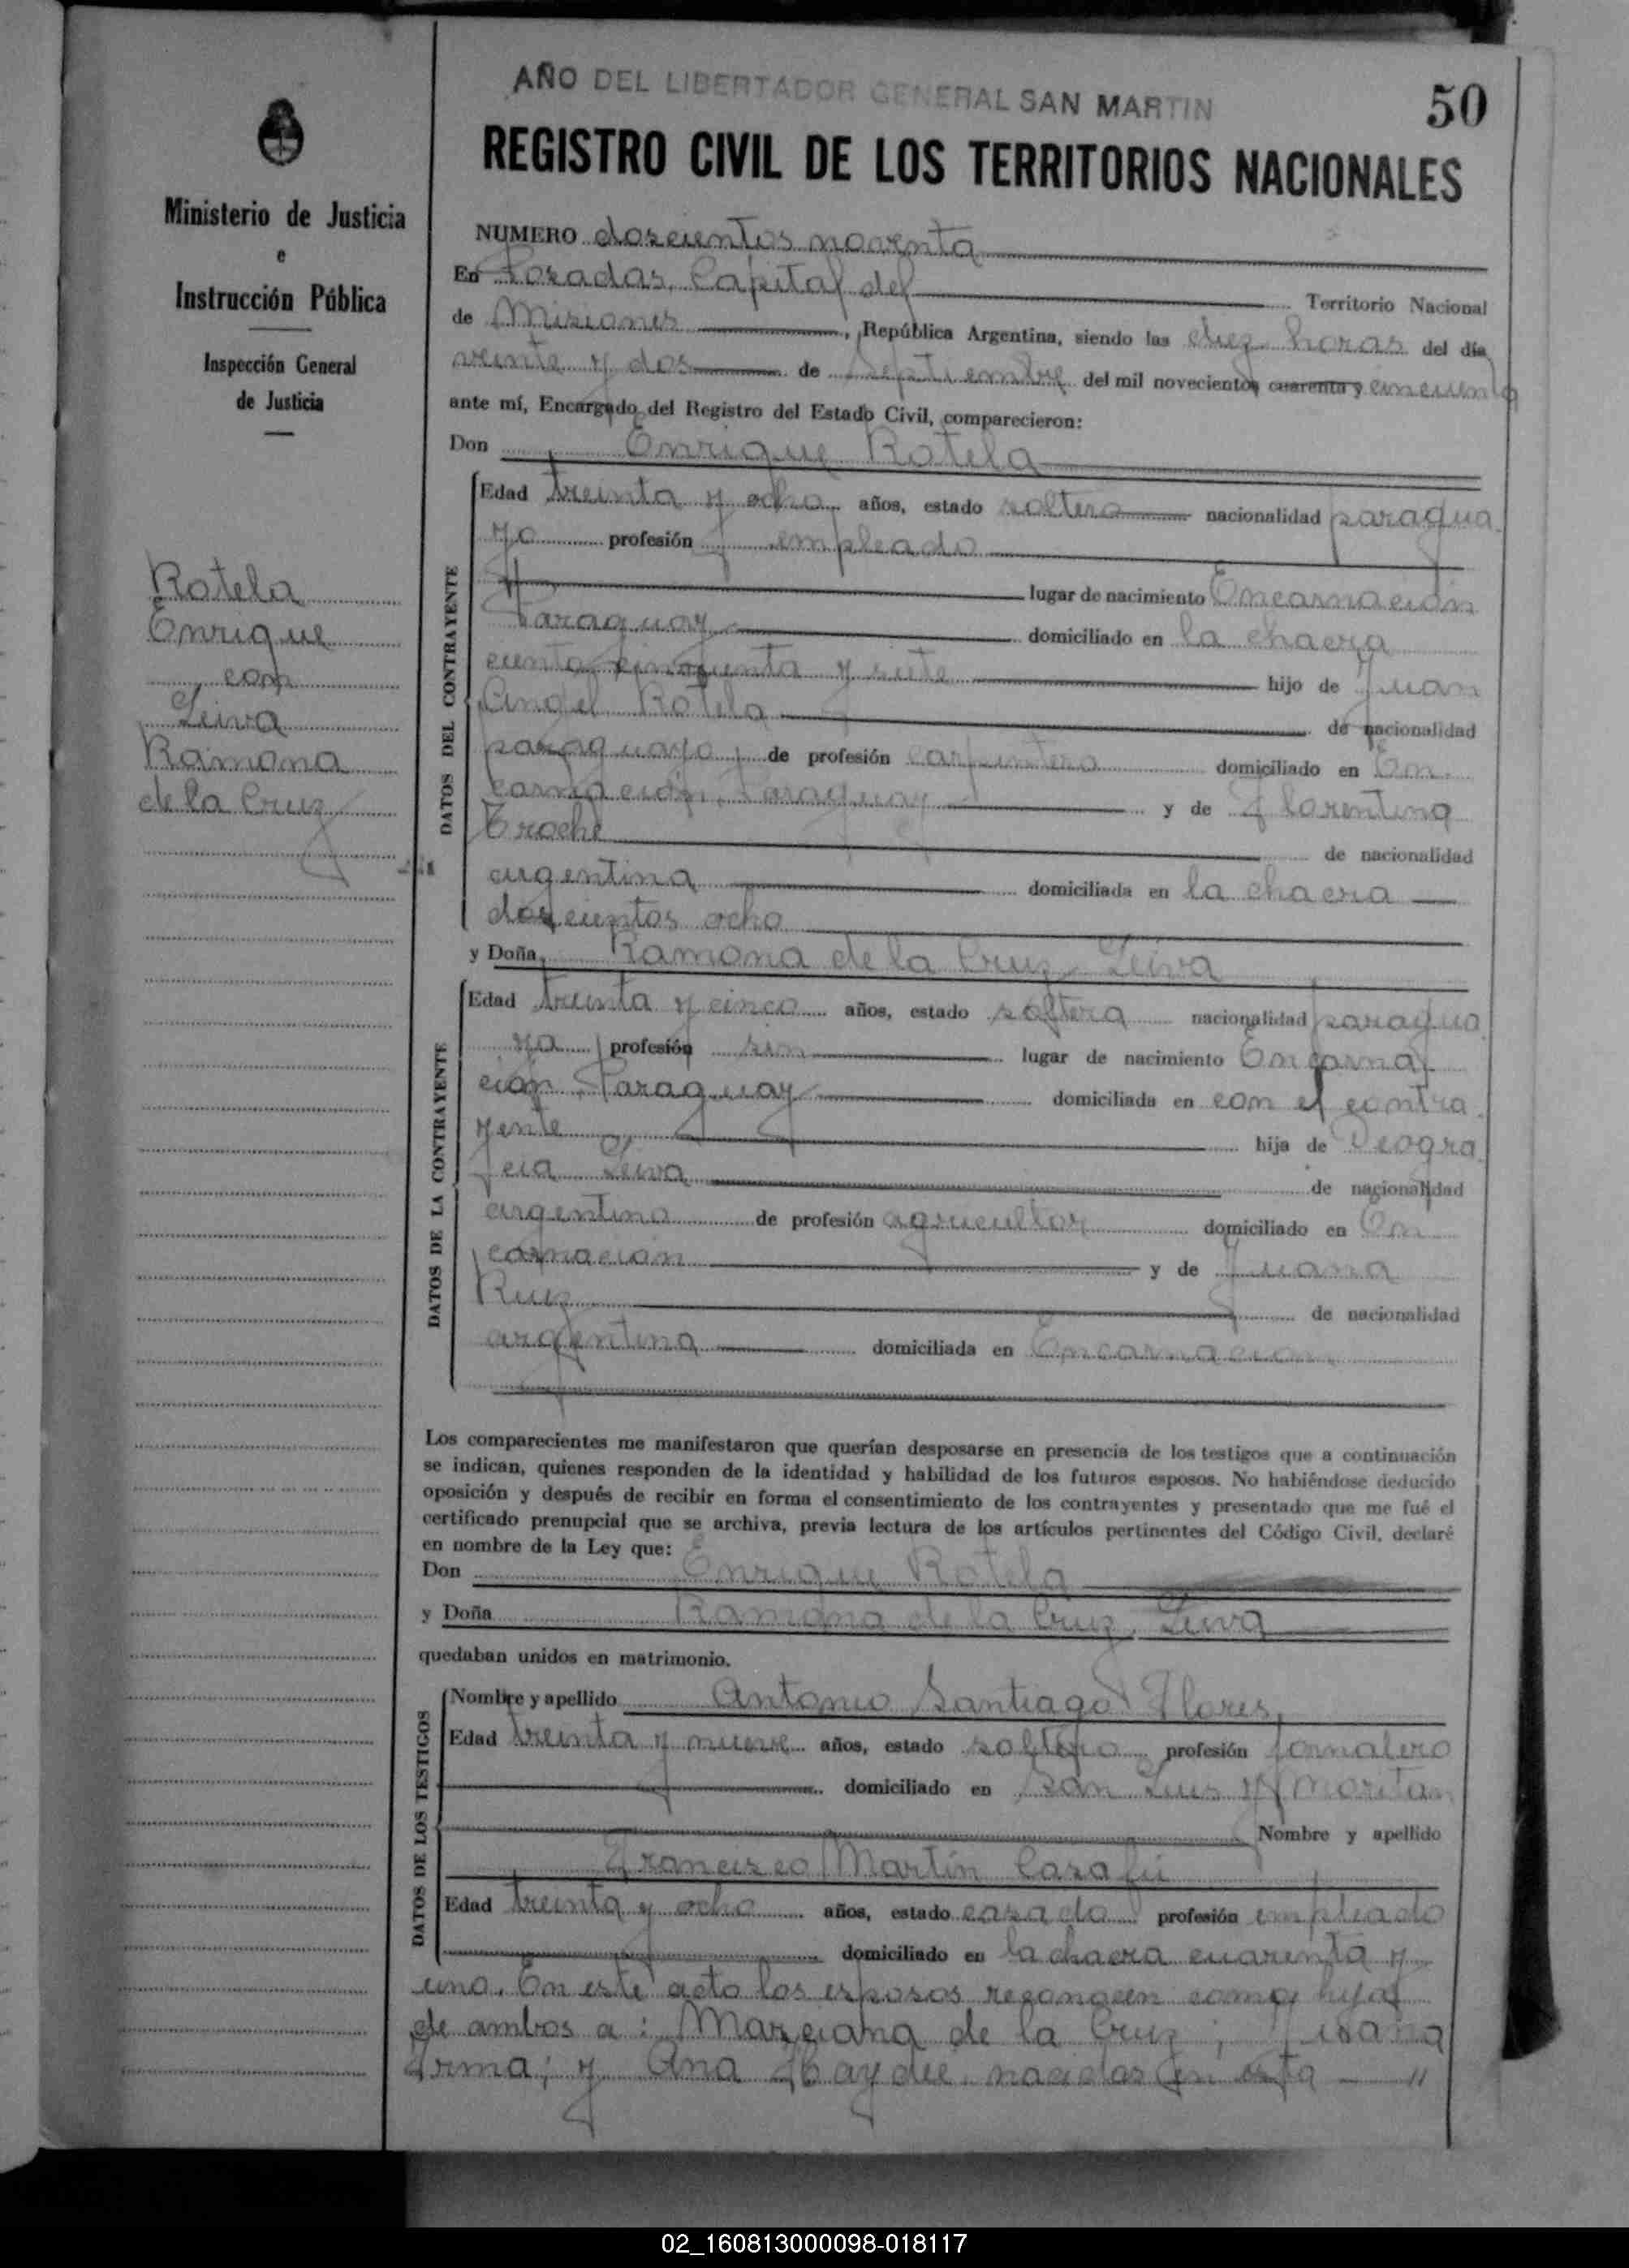 AÑO DEL LIBERTADOR GENERAL SAN MARTIN
50
REGISTRO CIVIL DE LOS TERRITORIOS NACIONALES
Ministerio de Justicia
e
Instrucción Pública
Inspección General
de Justicia
Rotela
Enrique
con
Leiva
Ramona
de la Cruz
NUMERO doscientos noventa
En Posadas, Capital del Territorio Nacional
de Misiones, República Argentina, siendo las diez horas del día
veinte y dos de Septiembre del mil novecientos cuarenta y cincuenta
ante mí, Encargado del Registro del Estado Civil, comparecieron:
Don Enrique Rotela
DATOS DEL CONTRAYENTE
Edad treinta y ocho años, estado soltero nacionalidad paragua
yo profesión empleado
lugar de nacimiento Encarnación
Paraguay domiciliado en la chacra
ciento cincuenta y siete hijo de Juan
Angel Rotela de nacionalidad
paraguayo de profesión carpintero domiciliado en En
carnación, Paraguay y de Florentina
Troche de nacionalidad
argentina domiciliada en la chacra
doscientos ocho
y Doña Ramona de la Cruz Leiva
DATOS DE LA CONTRAYENTE
Edad treinta y cinco años, estado soltera nacionalidad paragua
ya profesión sin lugar de nacimiento Encarna
ción Paraguay domiciliada en con el contra
yente hija de Deogra
cia Leiva de nacionalidad
argentino de profesión agricultor domiciliado en En
carnación y de Juana
Ruiz de nacionalidad
argentina domiciliada en Encarnación
Los comparecientes me manifestaron que querían desposarse en presencia de los testigos que a continuación
se indican, quienes responden de la identidad y habilidad de los futuros esposos. No habiéndose deducido
oposición y después de recibir en forma el consentimiento de los contrayentes y presentado que me fué el
certificado prenupcial que se archiva, previa lectura de los artículos pertinentes del Código Civil, declaré
en nombre de la Ley que:
Don Enrique Rotela
y Doña Ramona de la Cruz Leiva
quedaban unidos en matrimonio.
DATOS DE LOS TESTIGOS
Nombre y apellido Antonio Santiago Flores,
Edad treinta y nueve años, estado soltero profesión jornalero
domiciliado en San Luis y
Nombre y apellido
Francisco Martín
Edad treinta y ocho años, estado casado profesión empleado
domiciliado en la chacra cuarenta y
uno. En este acto los esposos reconocen como hijas
de ambos a: Marciana de la Cruz; Juana
Irma; y Ana Haydeé, nacidas en esta "
02_160813000098-018117